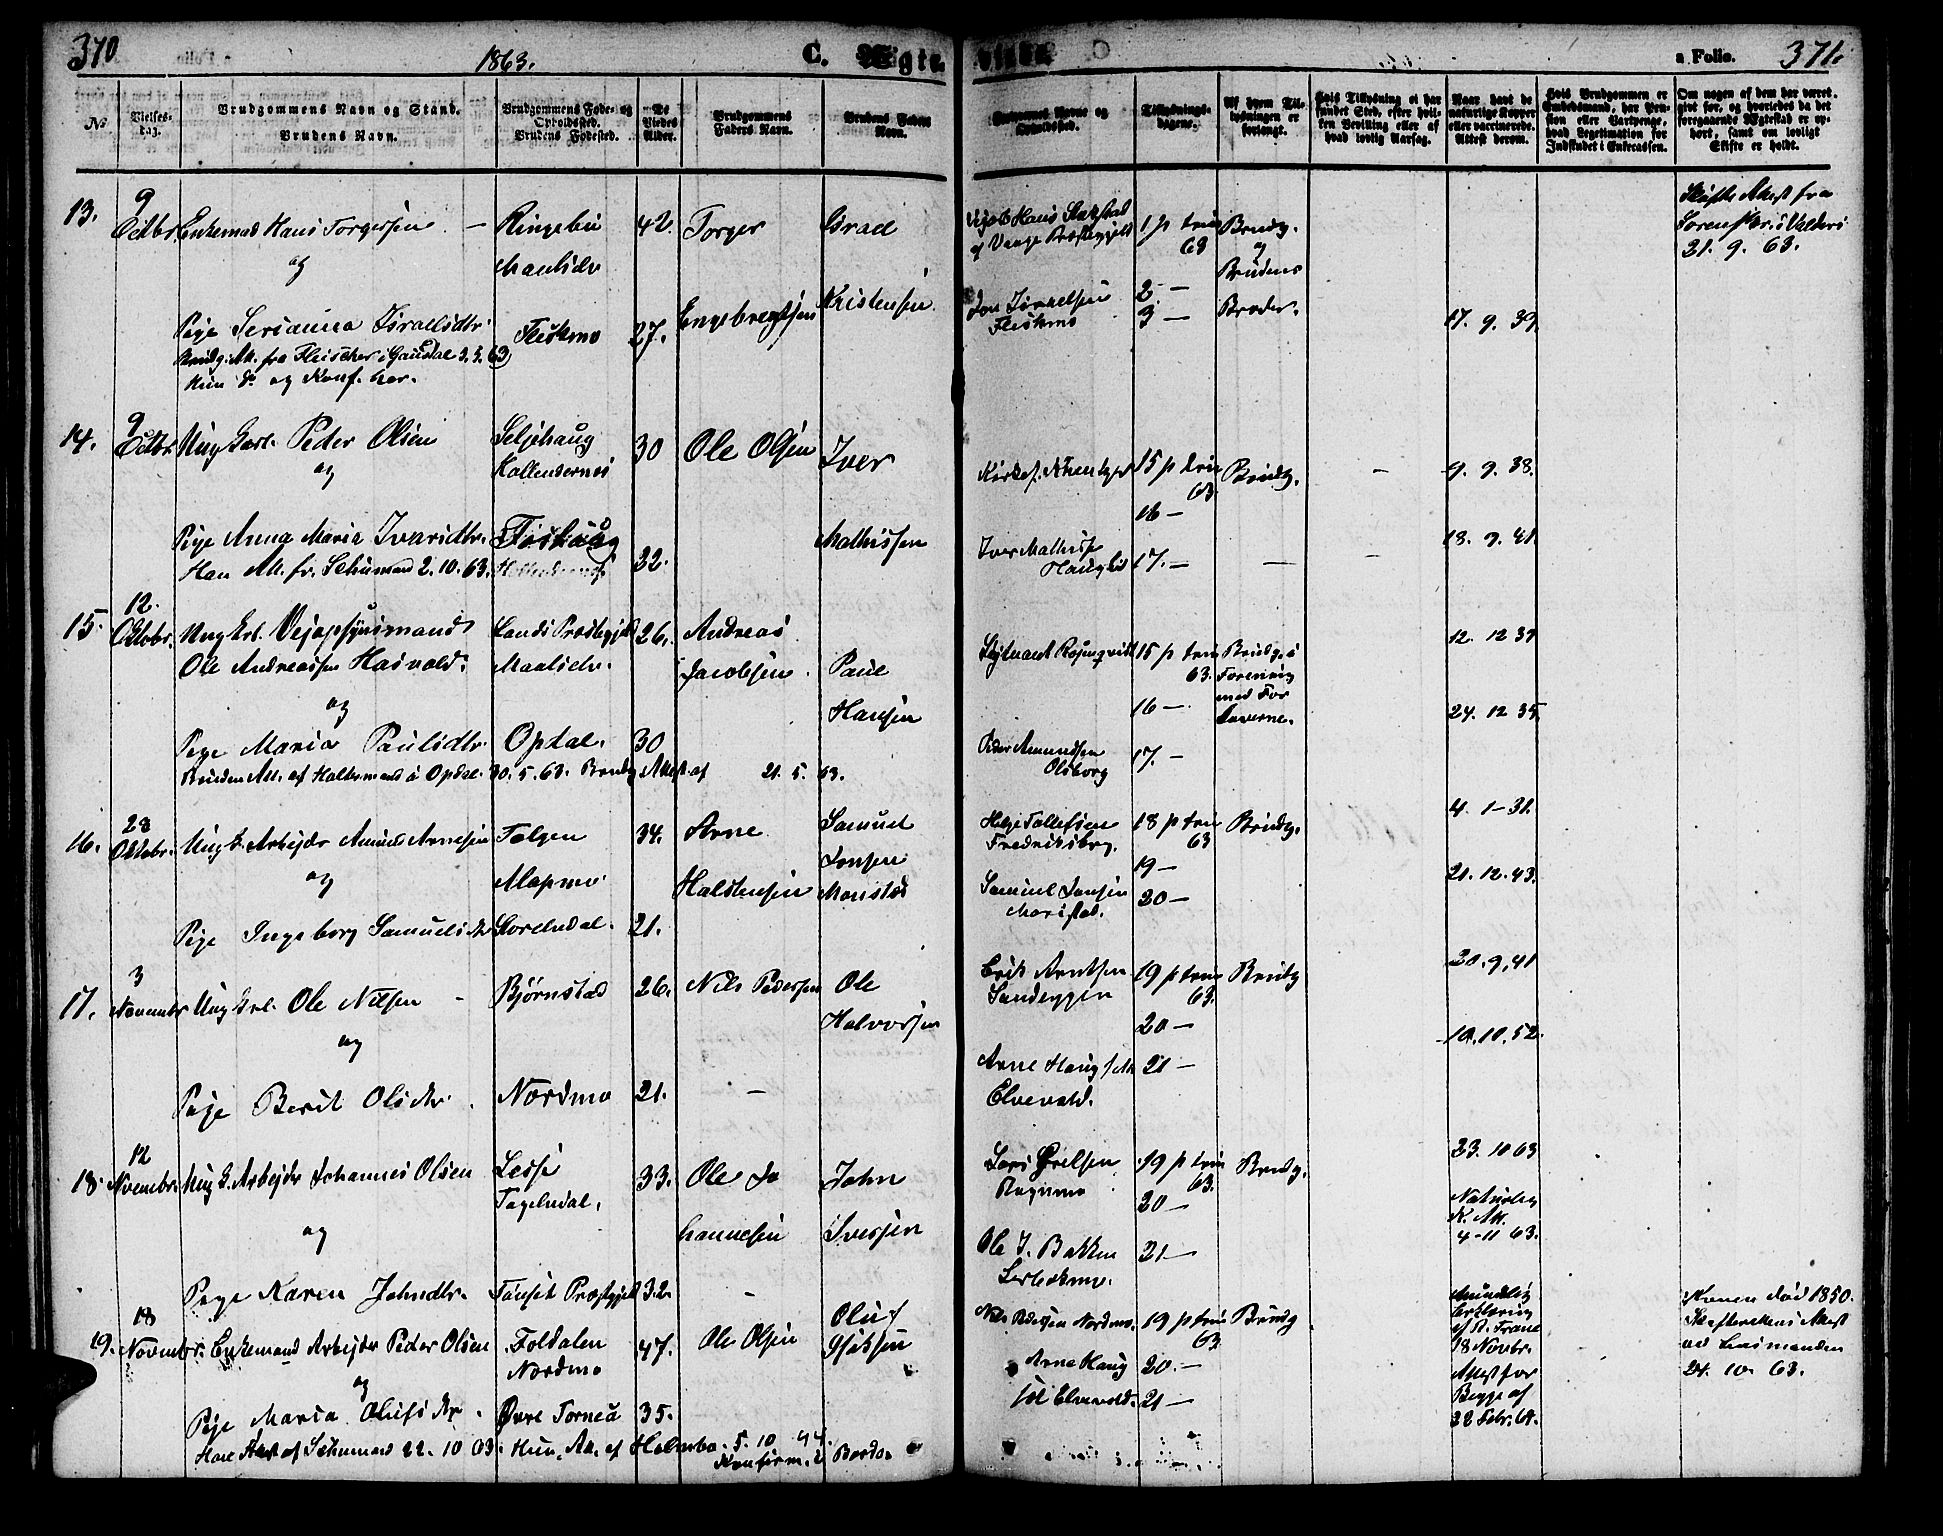 370
1863.
C. Ægte
viede
a Folio. 371.
No
Vielses-
dag.
Brudgommens Navn og Stand.
Brudens Navn.
Brudgommens Føde- og
Opholdssted.
Brudens Fødested.
De
Viedes
Alder.
Brudgommens
Faders Navn.
Brudens Faders
Navn.
Forlovernes Navne og
Opholdssted.
Tillysnings-
dagene.
Af hvem Til-
lysningen er
forlangt.
Hvis Tillysning ei har
fundet Sted, efter hvil-
ken Bevilling eller af
hvad lovlig Aarsag.
Naar havt de
naturlige Kopper
eller vaccinerede.
Attest derom.
Hvis Brudgommen er
Embedsmand, har Pen-
sion eller Vartpenge,
hvad Legitimation for
Indskudet i Enkecassen.
Om nogen af dem har været
gift før, og hvorledes da det
foregaaende Ægteskab er op-
hørt, samt om lovligt
Skifte er holdt.
13.
9
Octbr.
Enkemad Hans Torgersen —
og
Pige Serianna Israelsdtr.
Brudg. Att. fra Fleischer i Gausdal 3. 3. 63
Hun d. og Konf. her.
Ringebu
Maalselv
Fleskmo
42.
27.
Torger
Engebregtsen
Grad
Kristensen
Hans Stakstad
af Vaage Præstegjeld
Jon Israelsen
Fleskmo
1 p trin
63
2 —
3 —
Brudg.
og
Brudens
Broder.
17. 9. 39.
Skifte Attest fra
Sorenskr. i Valders
21. 9. 63.
14.
9
Octbr.
Ung karl. Peder Olsen
og
Pige Anna Maria Ivarsdtr.
Han Att. fr. Schumand 2. 10. 63.
Seljehaug
Fleskhaug
30
32.
Ole Olsen
Iver
Mathissen
Iver Mathiss
Hauglid
15 p trin
63
16 —
17. —
Brudg.
—
—
—
9. 9. 38.
18. 9. 41
15.
12.
Oktobr.
Ung krl. Vejopsynsmand
Ole Andreassen Hasvold.
og
Pige Maria Paulsdtr.
Bruden Att. af Holtermand i Opdal. 30. 5. 63. Brudg. Attest af 21. 5. 63.
Lands Præstegjeld
Maalselv.
Opdal.
26.
30
Andreas
Jacobsen.
Paul
Hansen
Løjtnant Rosenqvist
Peder Amundsen
Olsborg
15 p trin
63.
16 —
17. —
Brudg. i
Forening
med For
loverne.
12. 12 37
24. 12 35.
16.
28
Oktobr.
Ung k. Arbejder Amund Arnesen
og
Pige Ingeborg Samuelsdtr.
Tolgen
Mapmo
Sørdal.
34.
21.
Arne
Halstensen
Samuel
Jonsen
Moristad
Helge Tollefsen
Fredriksberg.
Samuel Jonsen
Moristad.
18 p trin
63
19 —
20 —
Brudg.
4. 1 - 31.
21. 12. 43.
17.
3
Novembr
Ung krl. Ole Nilsen —
og
Pige Berit Olsdtr.
Bjørnstad
Nordmo
26.
21.
Nils Pedersen
—
Ole
Halvorsen
Erik Arntsen
Sandeggen
Arne Haug
Elvevold.
19 p trin
63.
20 —
21 —
Brudg
20. 9. 41
10. 10. 52.
18.
12
Novembr.
Ung k. Arbejder Johannes Olsen
og
Pige Karen Johndtr.
Lesje
Fagerdal.
Faaset Præstgjeld
33.
32.
Ole Jo
hannesen
—
John
Iversen
Lars
Ragnmo
Ole I. Bakken
19 p trin
63.
20 —
21 —
Brudg.
23. 10 63
Naturlig
K. Att.
4 - 11 63.
19.
18
Novembr.
Enkemand Arbejder Peder Olsen
og
Pige Maria Olufsdtr.
Han Attest af Schumand 22. 10 63. Hun. Att. af Holmbo. 5. 10 44.
Konfirm. i Bardo.
Foldalen
Nordmo
Øvre Torneå
47.
35.
Ole Olsen
Oluf
Nils Pedersen Nordmo.
Arne Haug
Elvevold.
19 p trin
63
20. —
21 —
Brudg
Mundtlig
Erklæring
18 Novbr.
Attest for
Begge af
22 Febr. 64.
Konen død 1850.
Skifterettens Attest
ved Lensmanden
24. 10. 63.